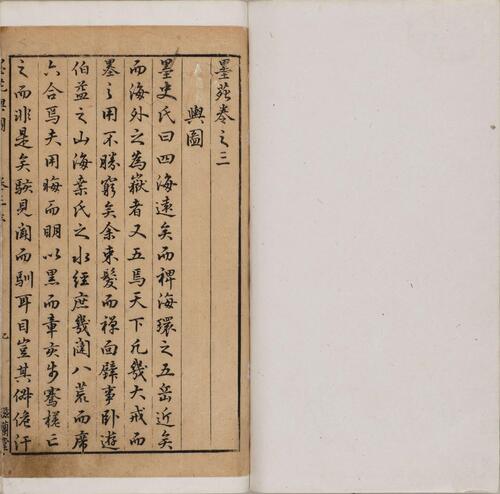 墨苑卷之三
輿圖
墨史氏曰四海遠矣而裨海環之五岳近矣
而海外之為嶽者又五焉天下凡幾大戒而
墨之用不勝窮矣余束髮而禪面壁事卧遊
伯益之山海桑氏之水經庶幾闊八荒而席
六合焉夫用晦而明以黑而章亥步騫槎亡
之而非是矣駭見聞而馴耳目豈其僻佹汗
墨苑輿圖
卷三上
乙
滋蘭堂